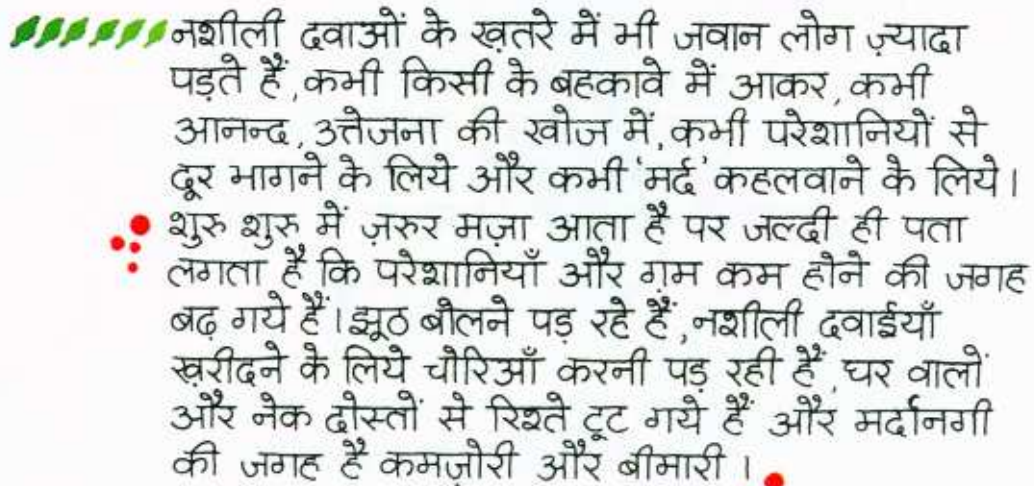 नशीली दवाओं के ख़तरे में भी जवान लोग ज़्यादा
पड़ते हैं, कभी किसी के बहकावे में आकर, कभी
आनन्द, उत्तेजना की खोज में, कभी परेशानियों से
दूर भागने के लिये और कभी 'मर्द' कहलवाने के लिये।
शुरु शुरु में ज़रुर मज़ा आता है पर जल्दी ही पता
लगता है कि परेशानियाँ और ग़म कम होने की जगह
बढ़ गये हैं। झूठ बोलने पड़ रहे हैं, नशीली दवाईयाँ
ख़रीदने के लिये चोरिआँ करनी पड़ रही हैं, घर वालों
और नेक दोस्तों से रिश्ते टूट गये हैं और मर्दानगी
की जगह है कमज़ोरी और बीमारी।